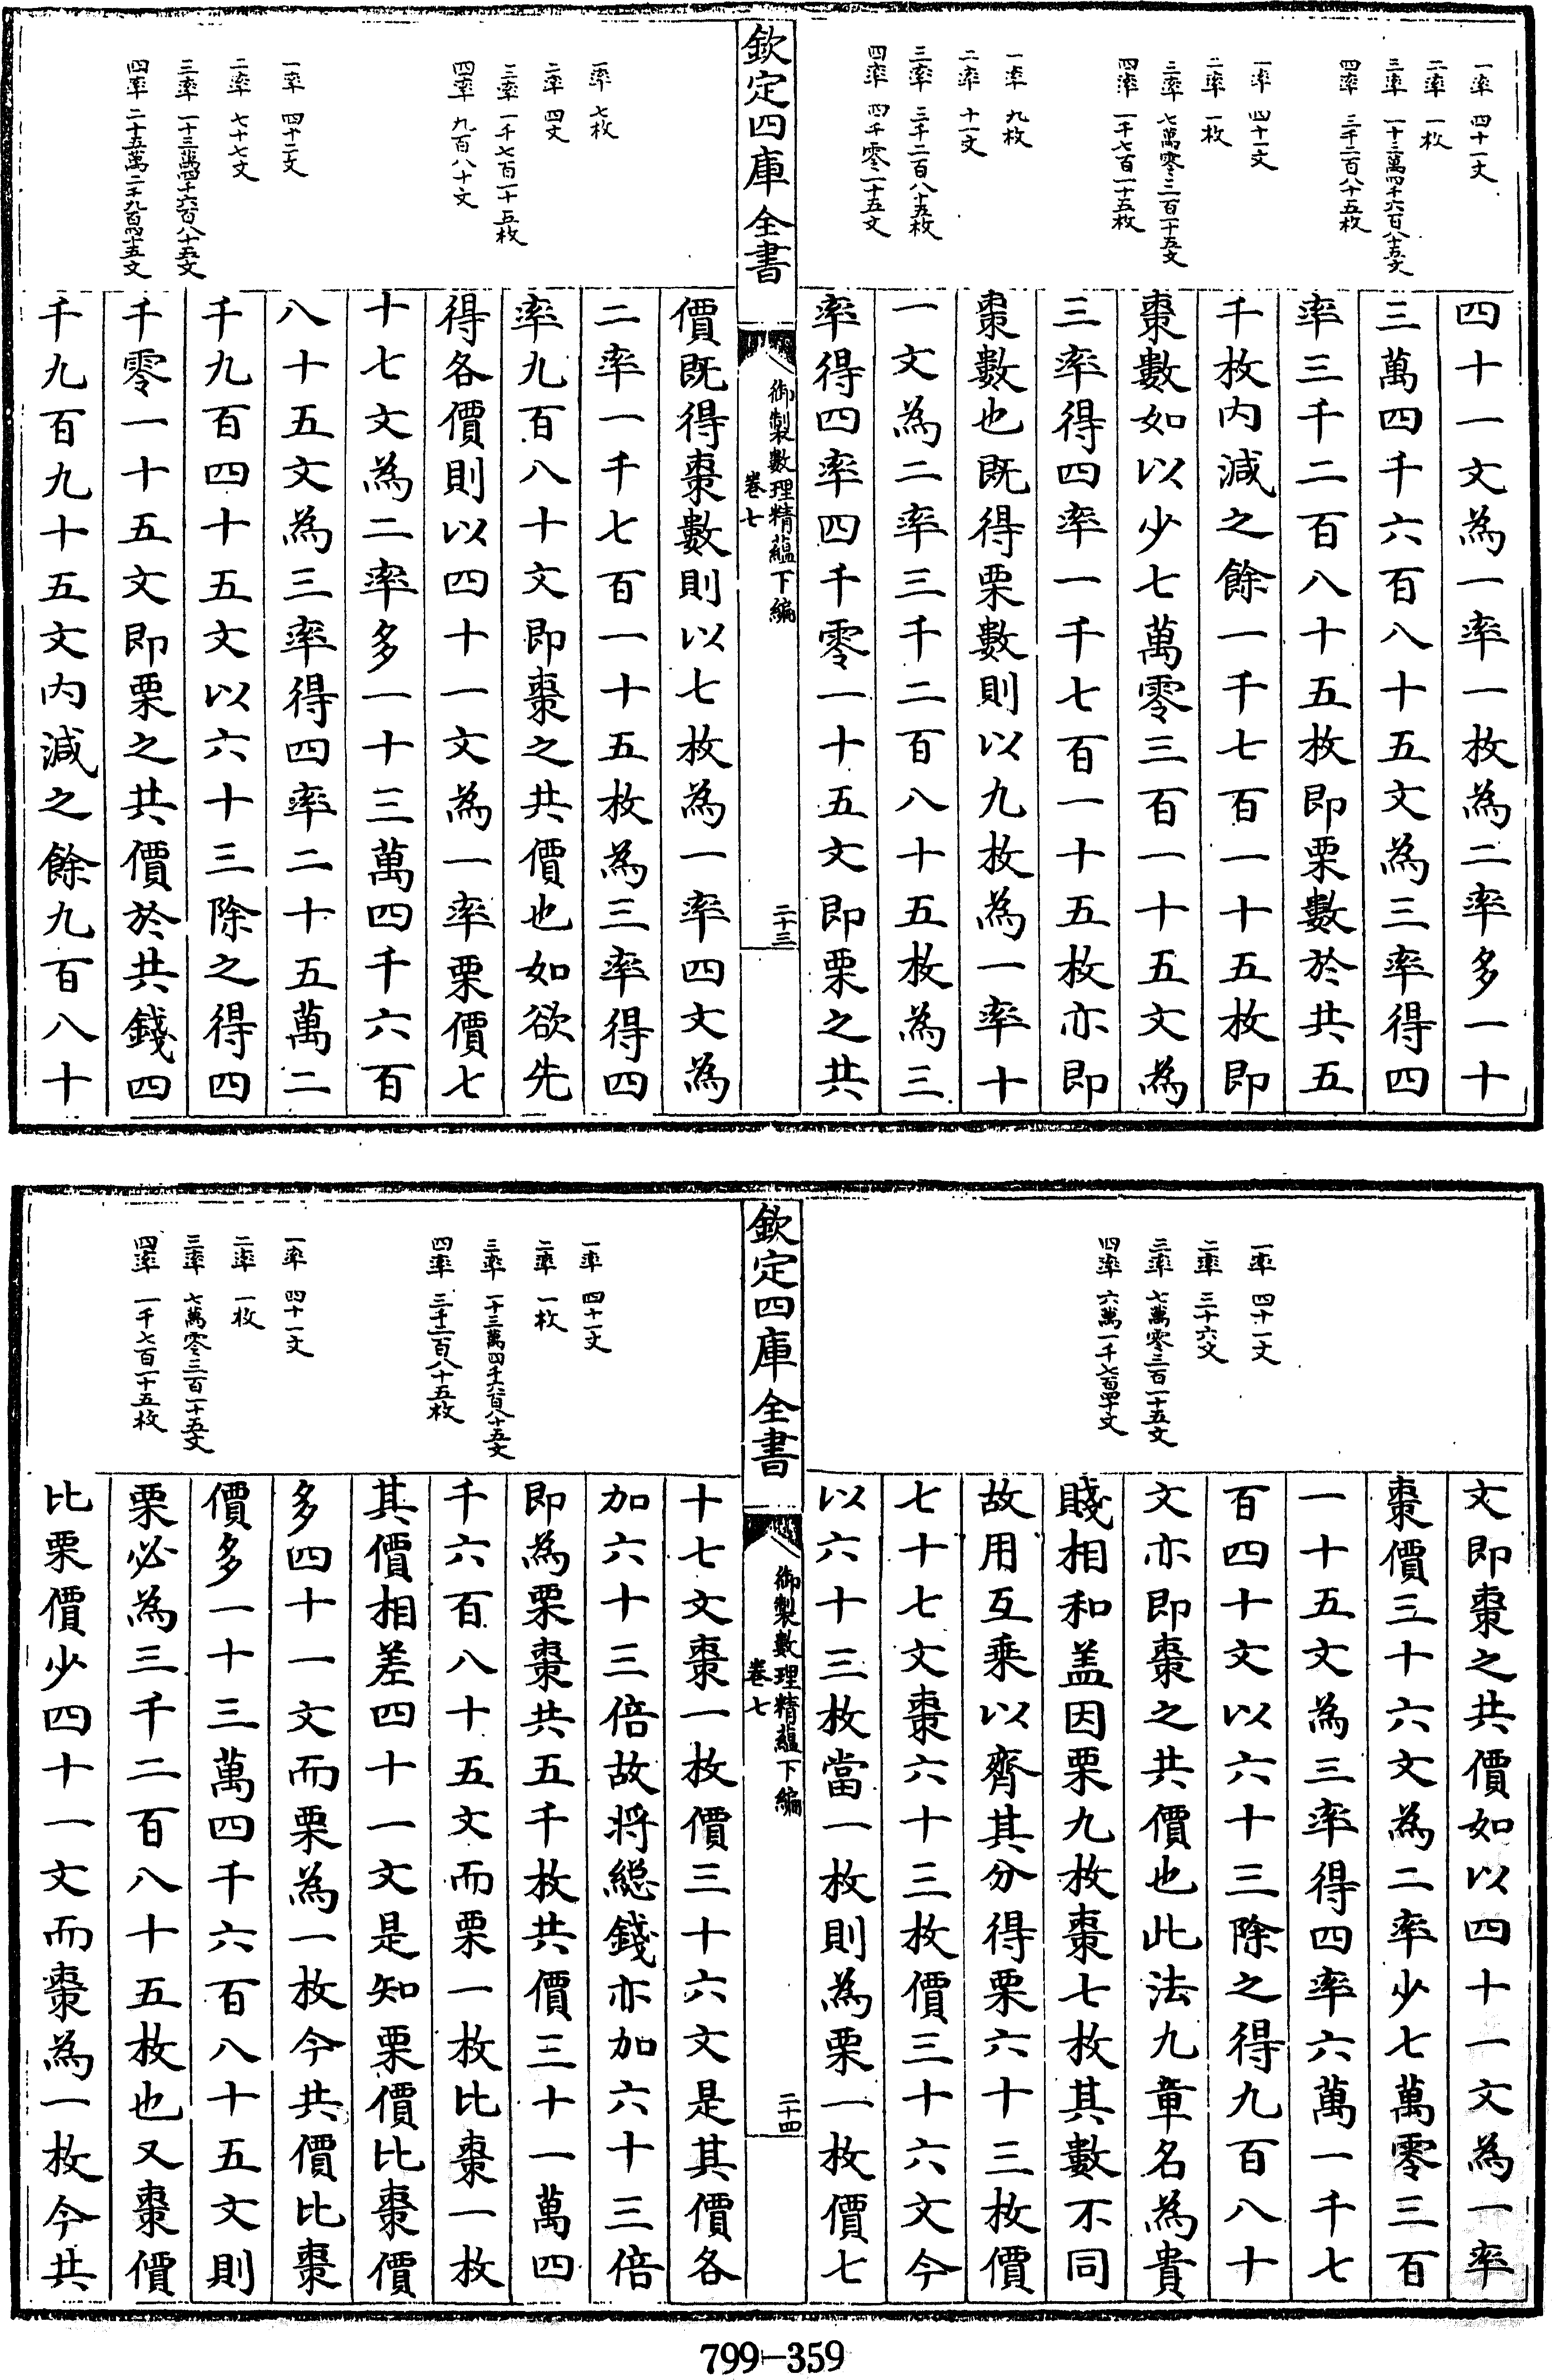 一率 四十一文
二率 一枚
三率 一十三萬四千六百八十五文
四率 三千二百八十五枚
一率 四十一文
二率 一枚
三率 七萬零三百一十五文
四率 一千七百一十五枚
一率 九枚
二率 十一文
三率 三千二百八十五枚
四率 四千零一十五文
四十一文為一率一枚為二率多一十
三萬四千六百八十五文為三率得四
率三千二百八十五枚即栗數於共五
千枚内減之餘一千七百一十五枚即
棗數如以少七萬零三百一十五文為
三率得四率一千七百一十五枚亦即
棗數也既得栗數則以九枚為一率十
一文為二率三千二百八十五枚為三
率得四率四千零一十五文即栗之共
欽定四庫全書
御製數理精蘊下編
卷七
二十三
一率 七枚
二率 四文
三率 一千七百一十五枚
四率 九百八十文
一率 四十一文
二率 七十七文
三率 一十三萬四千六百八十五文
四率 二十五萬二千九百四十五文
價既得棗數則以七枚為一率四文為
二率一千七百一十五枚為三率得四
率九百八十文即棗之共價也如欲先
得各價則以四十一文為一率栗價七
十七文為二率多一十三萬四千六百
八十五文為三率得四率二十五萬二
千九百四十五文以六十三除之得四
千零一十五文即栗之共價於共錢四
千九百九十五文内減之餘九百八十
一率 四十一文
二率 三十六文
三率 七萬零三百一十五文
四率 六萬一千七百四十文
文即棗之共價如以四十一文為一率
棗價三十六文為二率少七萬零三百
一十五文為三率得四率六萬一千七
百四十文以六十三除之得九百八十
文亦即棗之共價也此法九章名為貴
賤相和盖因栗九枚棗七枚其數不同
故用互乗以齊其分得栗六十三枚價
七十七文棗六十三枚價三十六文今
以六十三枚當一枚則為栗一枚價七
欽定四庫全書
御製數理精蘊下編
卷七
二十四
一率 四十一文
二率 一枚
三率 一十三萬四千六百八十五文
四率 三千二百八十五枚
一率 四十一文
二率 一枚
三率 七萬零三百一十五文
四率 一千七百一十五枚
十七文棗一枚價三十六文是其價各
加六十三倍故将總錢亦加六十三倍
即為栗棗共五千枚共價三十一萬四
千六百八十五文而栗一枚比棗一枚
其價相差四十一文是知栗價比棗價
多四十一文而栗為一枚今共價比棗
價多一十三萬四千六百八十五文則
栗必為三千二百八十五枚也又棗價
比栗價少四十一文而棗為一枚今共
799-359